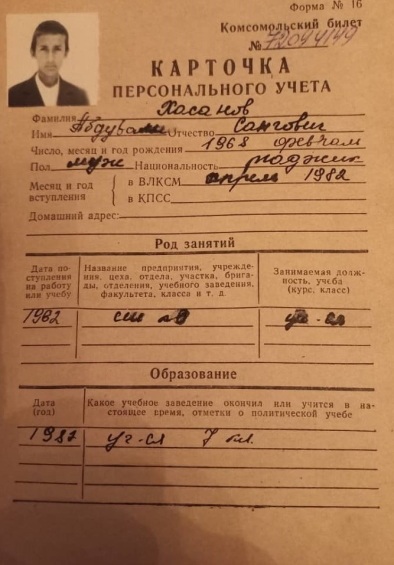 Форма № 16
Комсомольский билет
№ 72044149
КАРТОЧКА
ПЕРСОНАЛЬНОГО УЧЕТА
Фамилия Хасанов
Имя Отчество Сангович
Число, месяц и год рождения 1968
Пол муж Национальность таджик
Месяц и год вступления
в ВЛКСМ апрель 1982
в КПСС
Домашний адрес:
Род занятий
Дата поступления на работу или учебу
Название предприятия, учреждения, цеха, отдела, участка, бригады, отделения, учебного заведения, факультета, класса и т. д.
Занимаемая должность, учеба (курс, класс)
1982 уч-ся
Образование
Дата (год)
Какое учебное заведение окончил или учится в настоящее время, отметки о политической учебе
1982 уч-ся 7 кл.